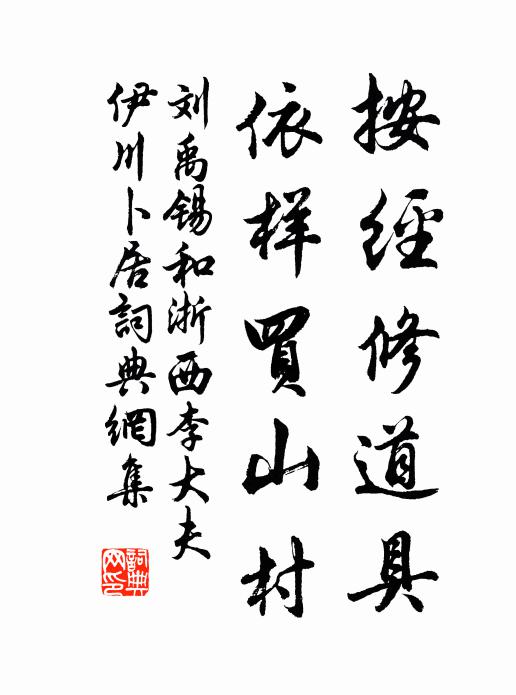 按經修道具
依样買山村
刘禹锡和浙西李大夫
伊川卜居詞典網集
詞典
网印